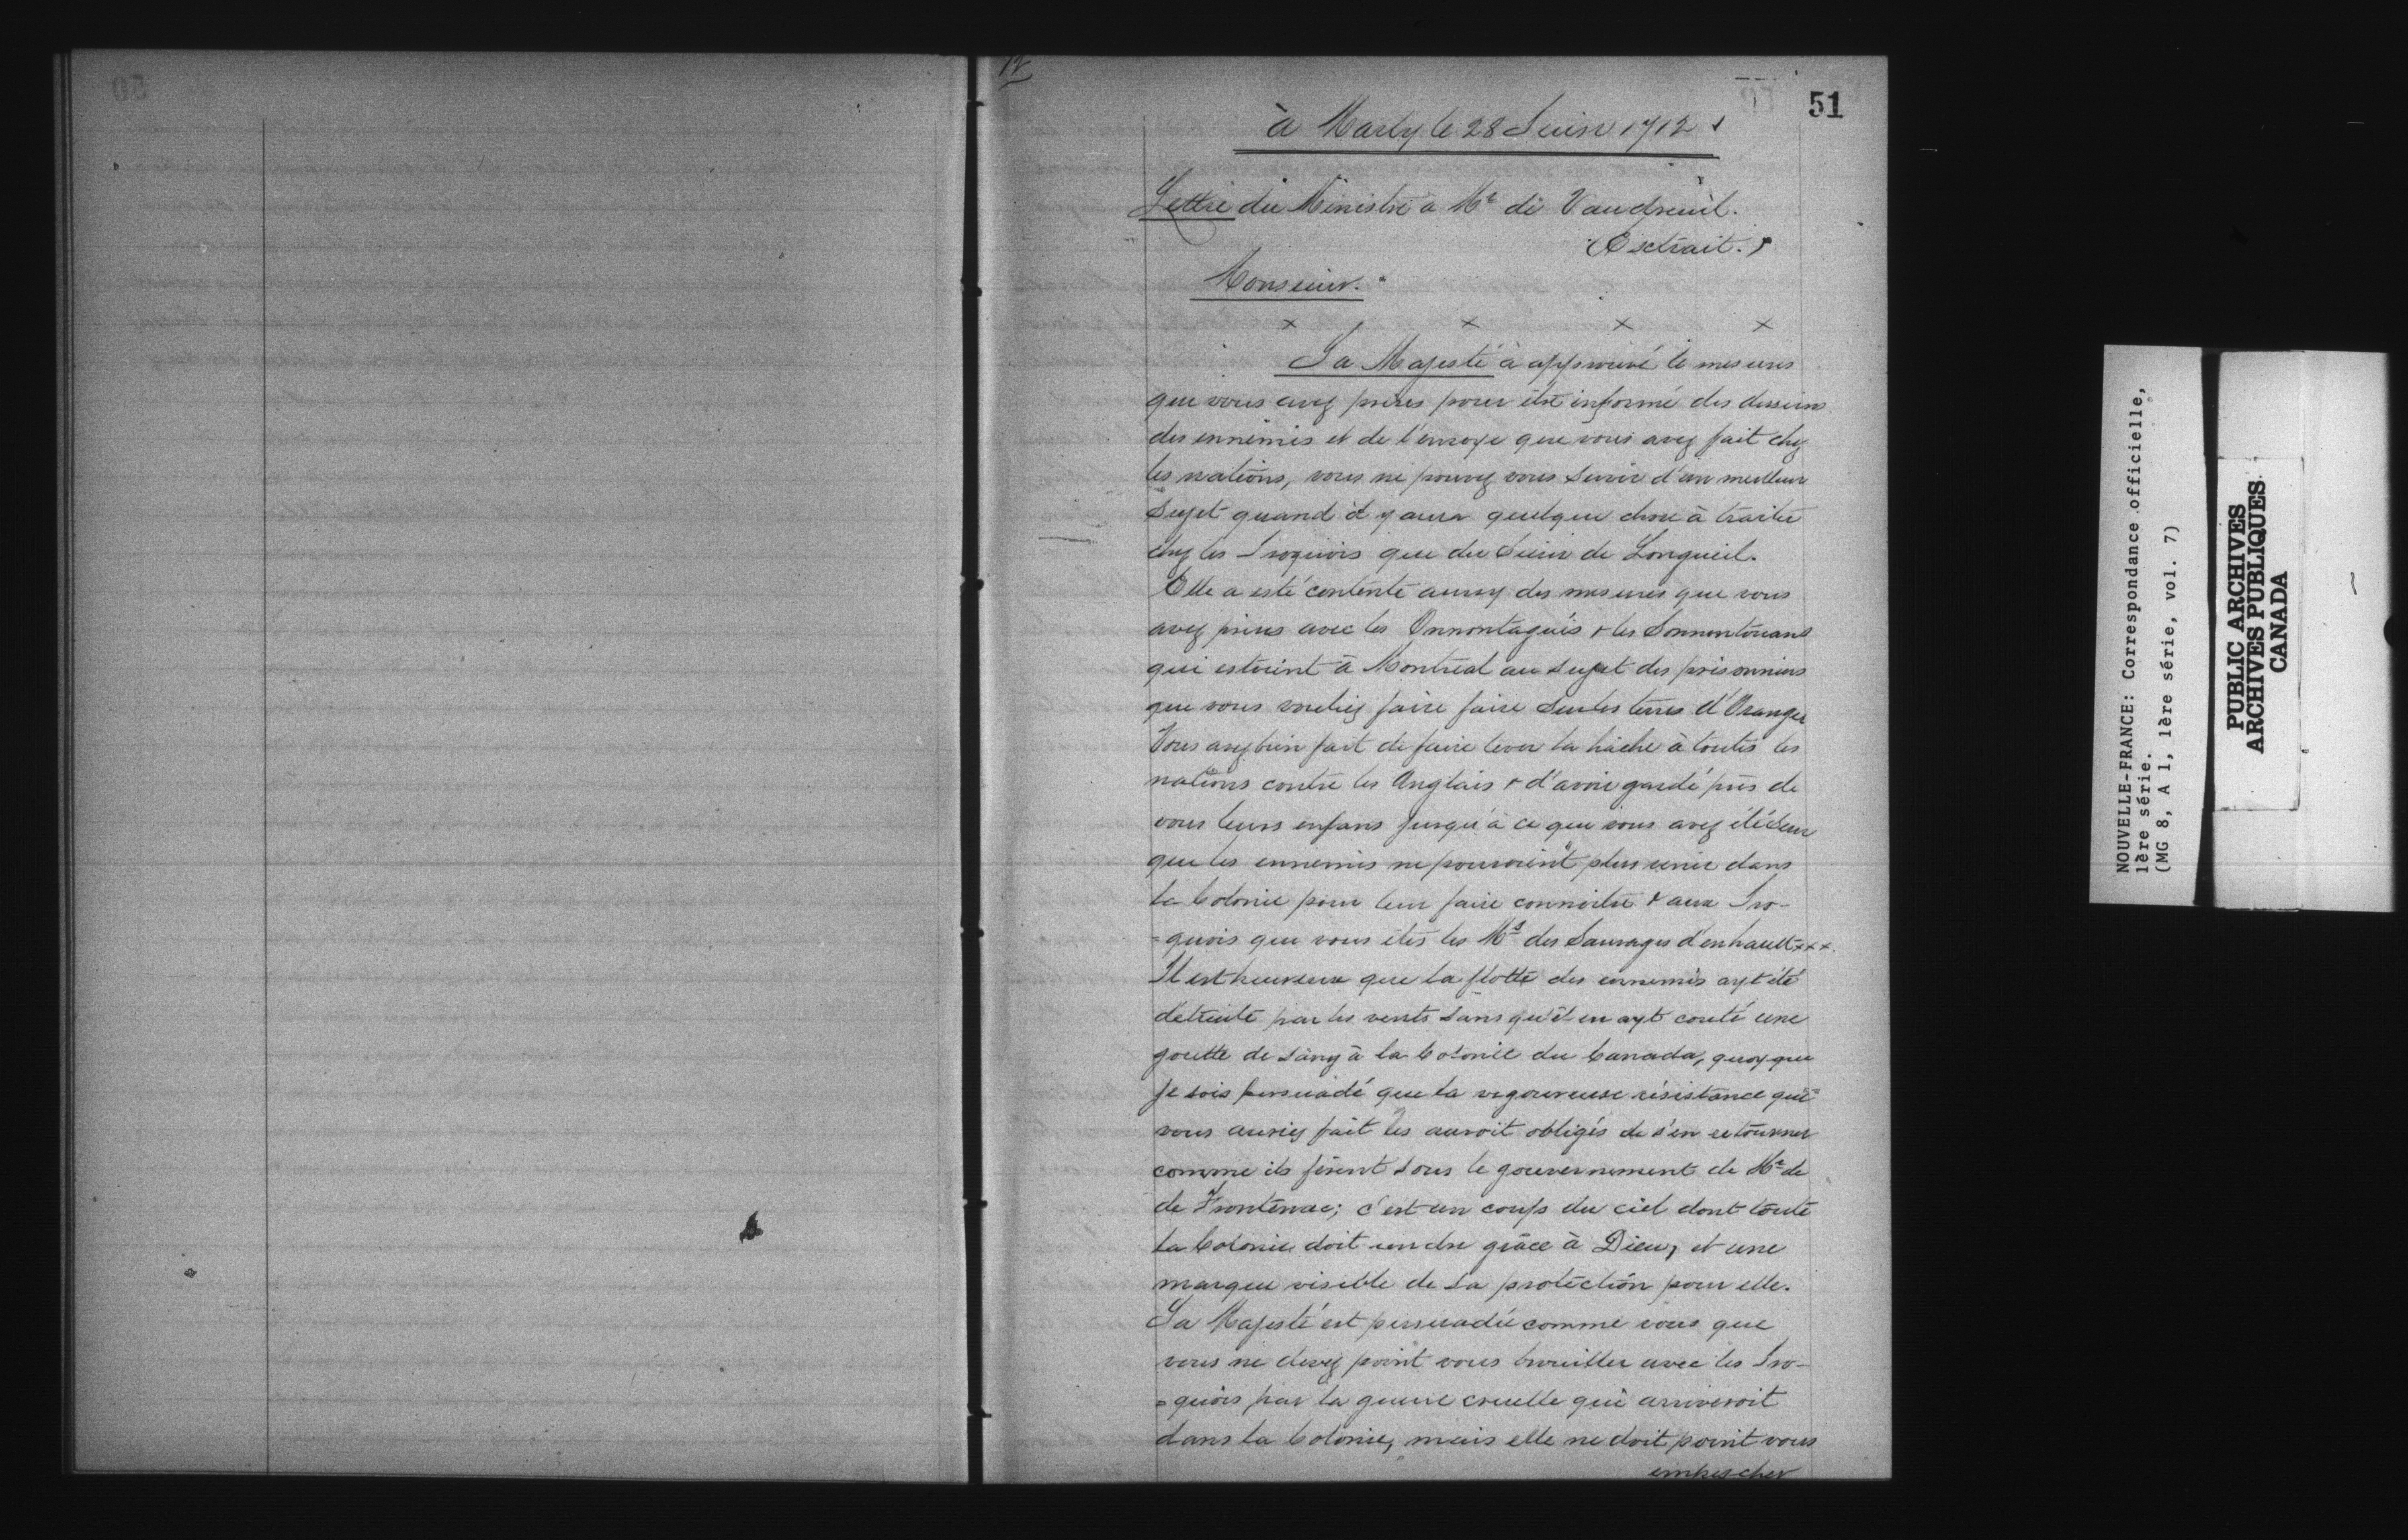 12
51
à Marly le 28 Juin 1712
Lettre du Ministre à Mr de Vaudreuil.
(Extrait.)
Monsieur.
x x x x
Sa Majesté à approuvé le mesures
que vous avez prises pour être informé des desseins
des ennemis et de l'envoye que vous avez fait chez
les nations, vous ne pouvez vous servir d'un meilleur
Sujet quand il y aura quelque chose à traiter
chez les Iroquois que du Sieur de Longueil.
Elle a esté contente aussy des mesures que vous
avez prises avec les Onnontagués & les Sonnontouans
qui estoient à Montréal au sujet des prisonniers
que vous vouliez faire faire sur les terres d'Orange
Vous avez bien fait de faire lever la hâche à toutes les
nations contre les Anglais & d'avoir gardé près de
vous leurs enfans jusqu'à ce que vous avez été seur
que les ennemis ne pouvoient plus venir dans
la Colonie pour leur faire connoitre & aux Iro-
=quois que vous êtes les Ms des Sauvages d'enhault xxx.
Il est heureux que la flotte des ennemis ayt été
détruite par les vents sans qu'il en ayt couté une
goutte de sang à la Colonie du Canada, quoyque
je sois persuadé que la vigoureuse résistance que
vous auriez fait les auroit obligés de s'en retourner
comme ils firent sous le gouvernement de Mr de
de Frontenac; c'est un coup du ciel dont toute
la Colonie doit rendre grâce à Dieu, et une
marque visible de sa protection pour elle.
Sa Majesté est persuadée comme vous que
vous ne devez point vous brouiller avec les Iro-
=quois par la guerre cruelle qui arriveroit
dans la Colonie, mais elle ne doit point vous
empescher
NOUVELLE-FRANCE: Correspondance officielle,
1ère série.
(MG 8, A 1, 1ère série, vol. 7)
PUBLIC ARCHIVES
ARCHIVES PUBLIQUES
CANADA